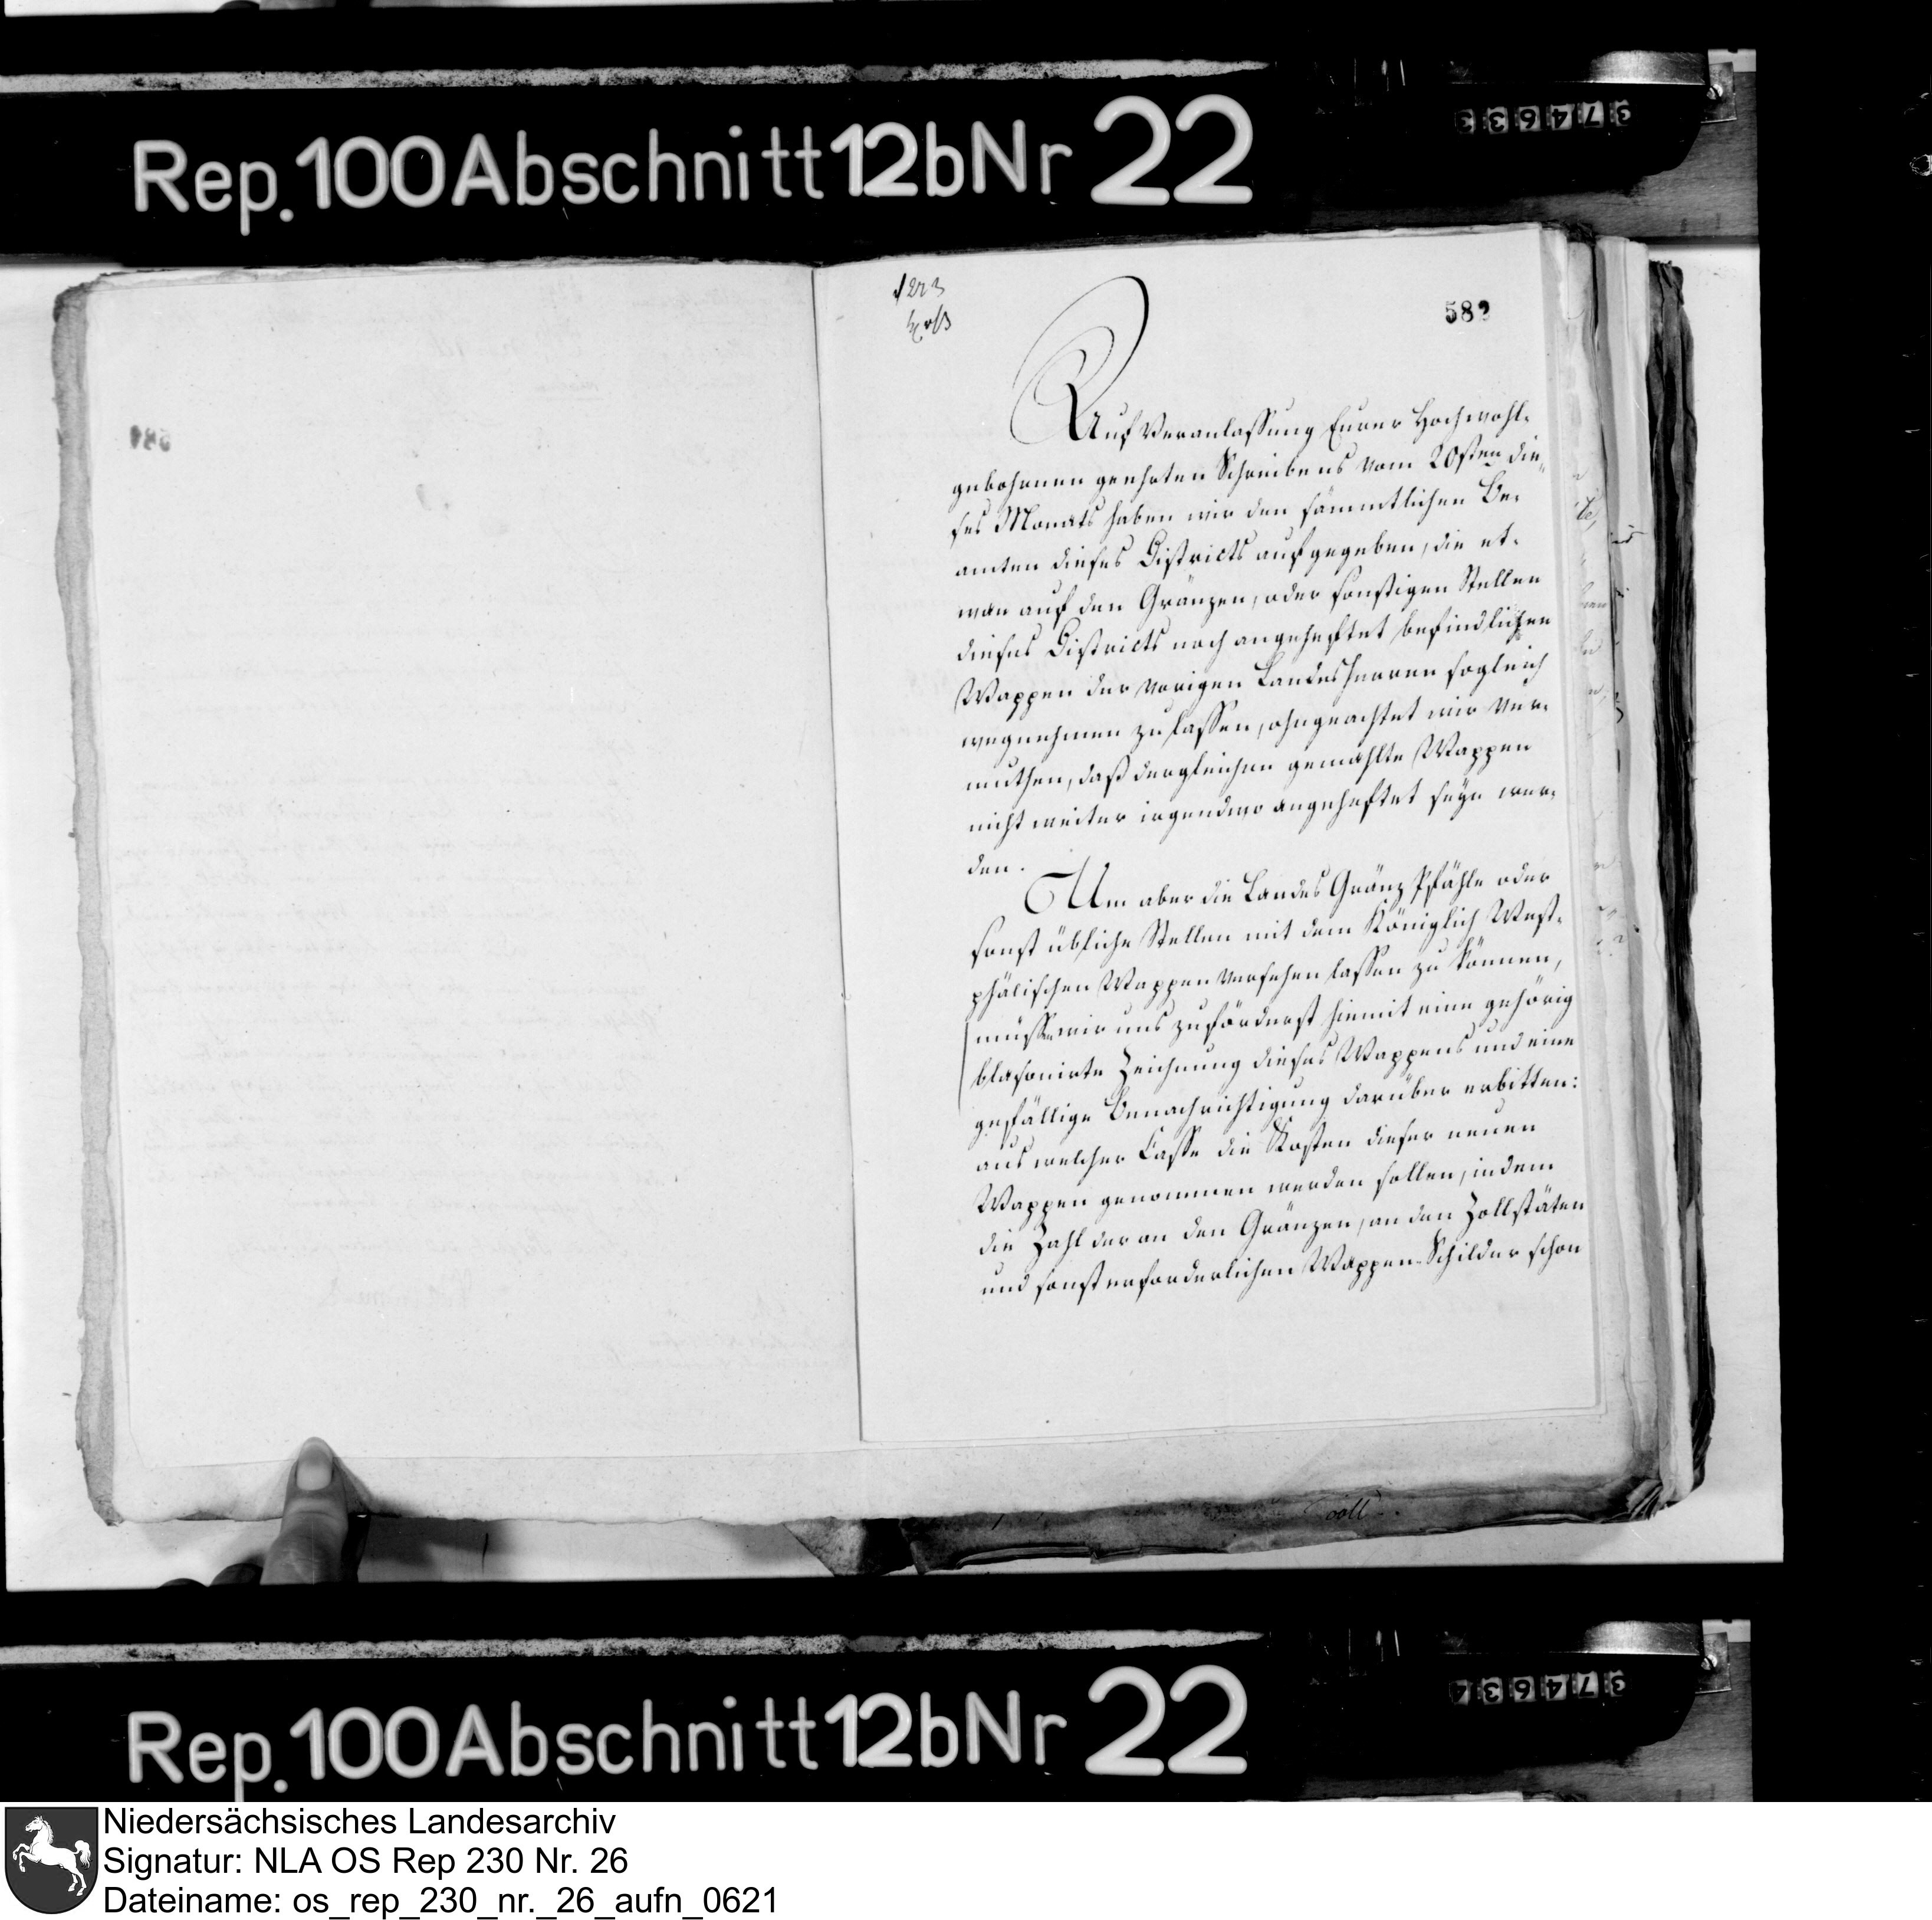 Rep. 100 Abschnitt 12b Nr 22
374633
581
1223
582
Auf Veranlassung Eurer Hochwohl-
gebohrnen geehrten Schreibens vom 20sten die-
ses Monats haben wir den sämmtlichen Be-
amten dieses Districts aufgegeben, die et-
wan auf den Gränzen, oder sonstigen Stellen
dieses Districts noch angeheftet befindlichen
Wappen der vorigen Landesherren sogleich
wegnehmen zu lassen, ohngeachtet wir ver-
muthen, daß dergleichen gemahlte Wappen
nicht weiter irgendwo angeheftet seyn wer-
den.
Um aber die Landes Gränz Pfähle oder
sonst übliche Stellen mit dem Königlich West-
phälischen Wappen versehen lassen zu können,
müssen wir uns zuförderst hiemit eine gehörig
blasonirte Zeichnung dieses Wappens und eine
gefällige Benachrichtigung darüber erbitten:
aus welcher Casse die Kosten dieser neuen
Wappen genommen werden sollen, indem
die Zahl der an den Gränzen, an den Zollstäten
und sonst erforderlichen Wappen-Schilder schon
Rep. 100 Abschnitt 12b Nr 22
374634
Niedersächsisches Landesarchiv
Signatur: NLA OS Rep 230 Nr. 26
Dateiname: os_rep_230_nr._26_aufn_0621